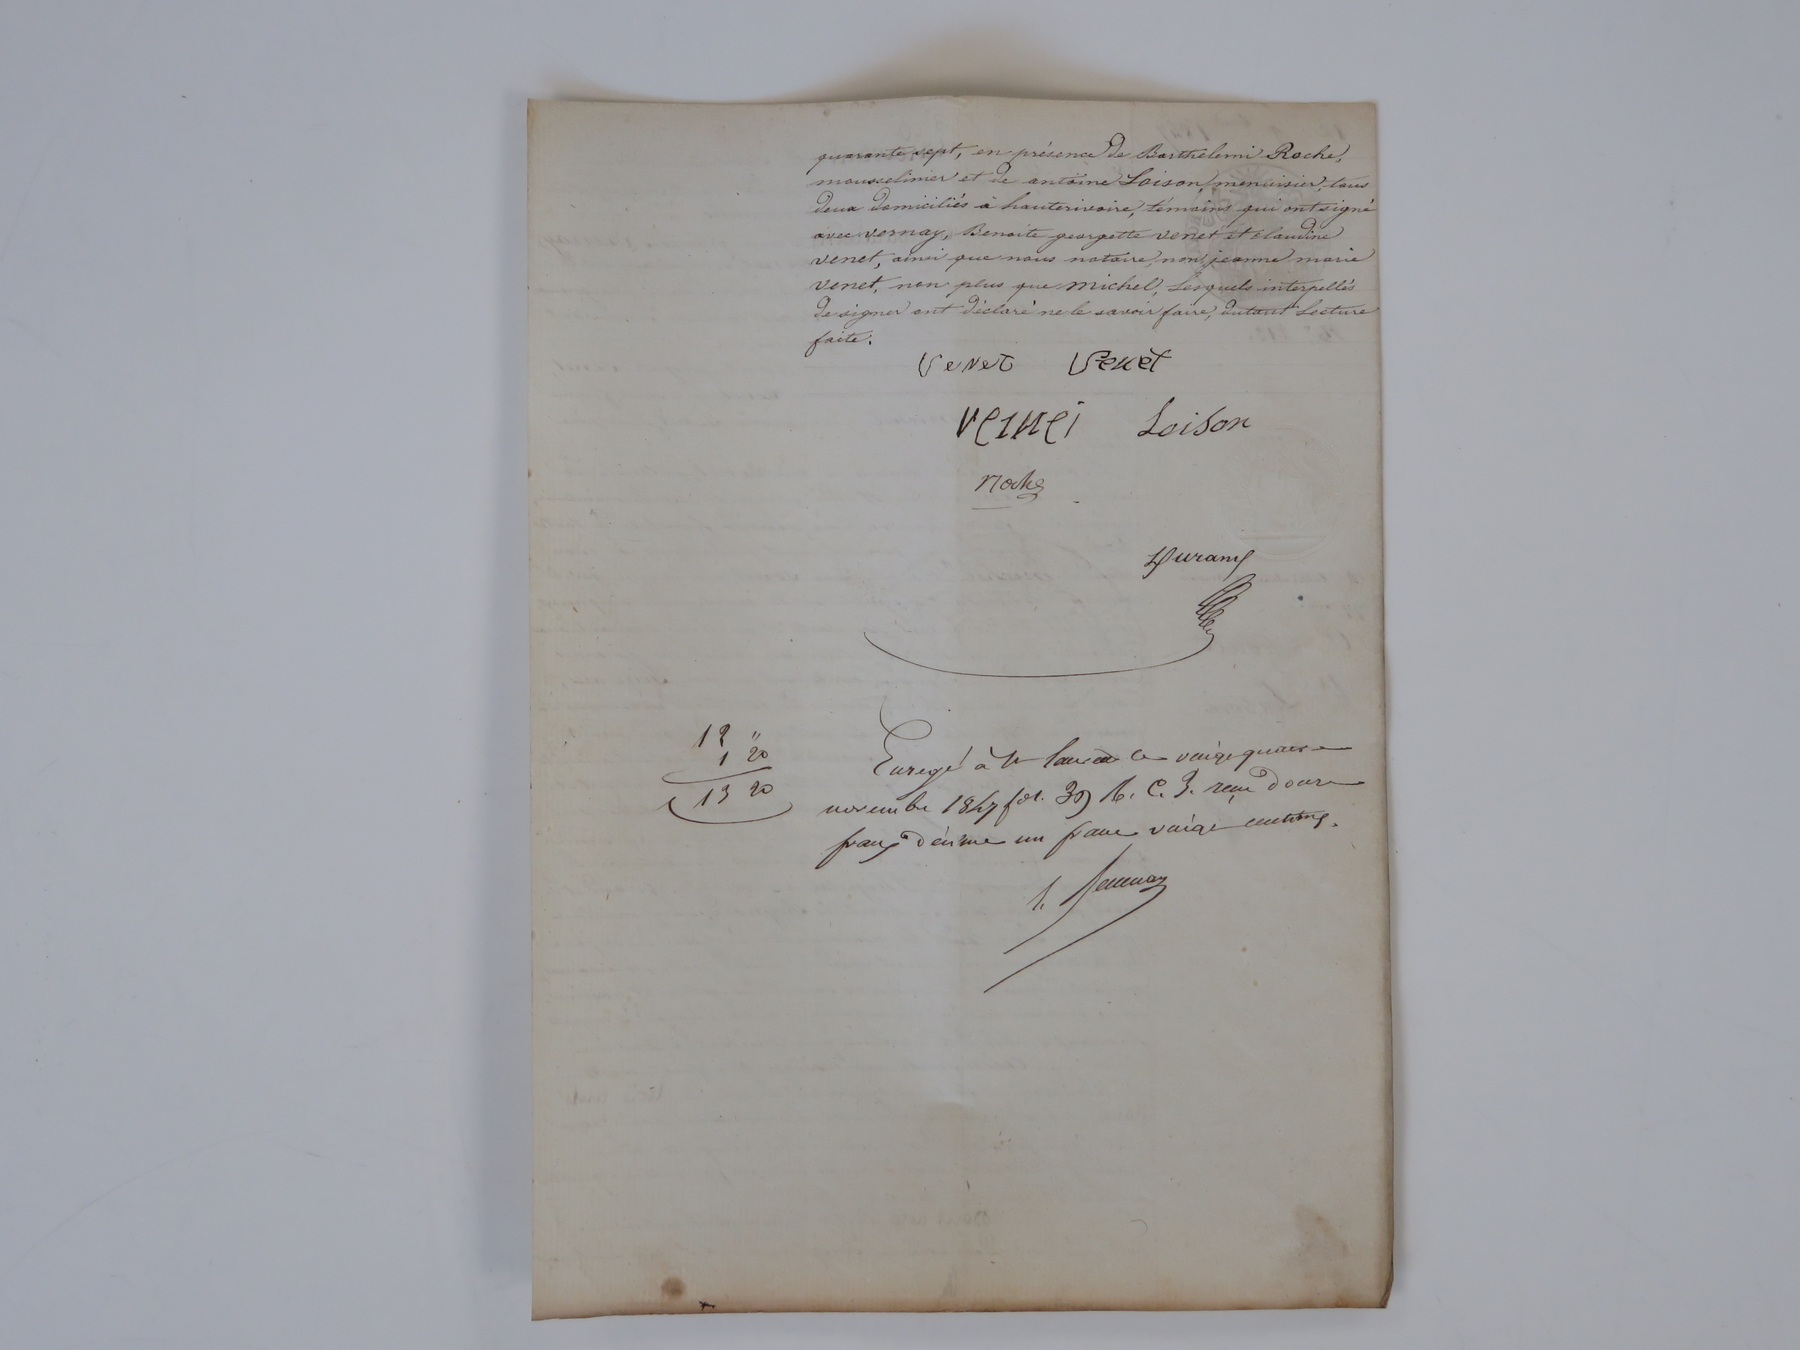 quarante sept, en présence de Barthélemi Roche,
mousselinier et de antoine Loison, menuisier, tous
deux domiciliés à hauterivoire, témoins qui ont signé
avec vernay, Benoite georgette venet et Claudine
venet, ainsi que nous notaire, non jeanne marie
venet, non plus que michel, lesquels interpellés
de signer ont déclaré ne le savoir faire, autant Lecture
faite.
Venet Venet
vernei Loison
Roche
Durand
12 "
1 20
13 20
Enregé à St Laurent le vingt quatre
novembre 1847 fol. 39 R. C. 3. reçu douze
francs décime un franc vingt centimes.